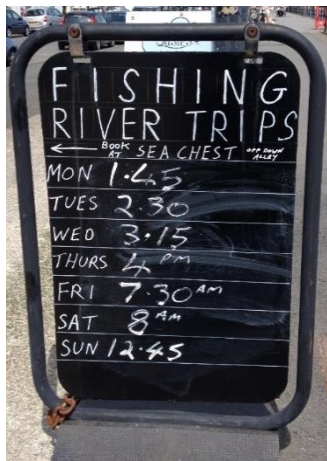 FISHING
RIVER TRIPS
← BOOK AT SEA CHEST OPP DOWN ALLEY
MON 1.45
TUES 2.30
WED 3.15
THURS 4 PM
FRI 7.30 AM
SAT 8 AM
SUN 12.45